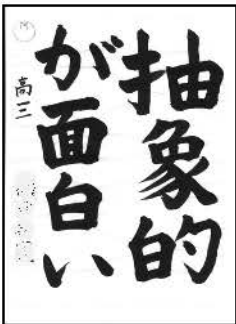 抽象的
が面白い
高三